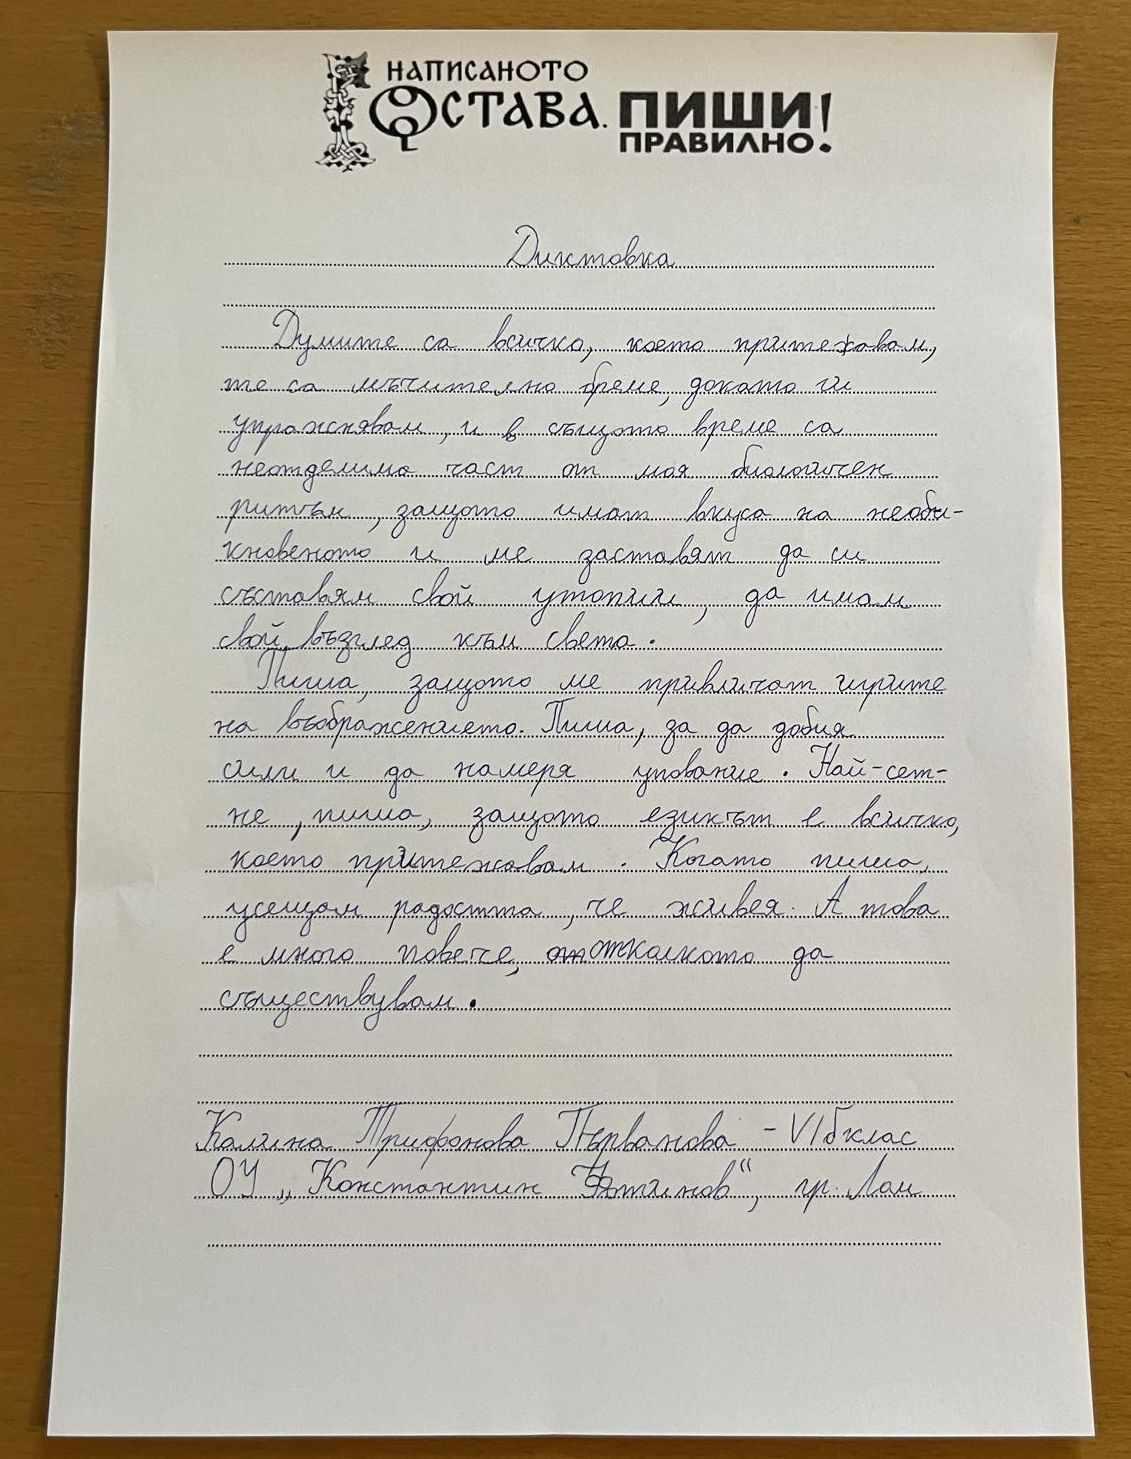 НАПИСАНОТО
ОСТАВА. ПИШИ
ПРАВИЛНО!
Диктовка
Думите са всичко, което притежавам,
те са мъчително бреме, докато ги
упражнявам, и в същото време са
неотделима част от моя биологичен
ритъм, защото имат вкуса на необи-
кновеното и ме заставят да си
съставям свой утопии, да имам
свой възглед към света.
Пиша, защото ме привличат игрите
на въображението. Пиша, за да добия
сили и да намеря упование. Най-сет-
не, пиша, защото езикът е всичко,
което притежавам. Когато пиша,
усещам радостта, че живея. А това
е много повече, отколкото да
съществувам.
Калина Трифонова Първанова - VI б клас
ОУ „Константин Фотинов“, гр. Лом